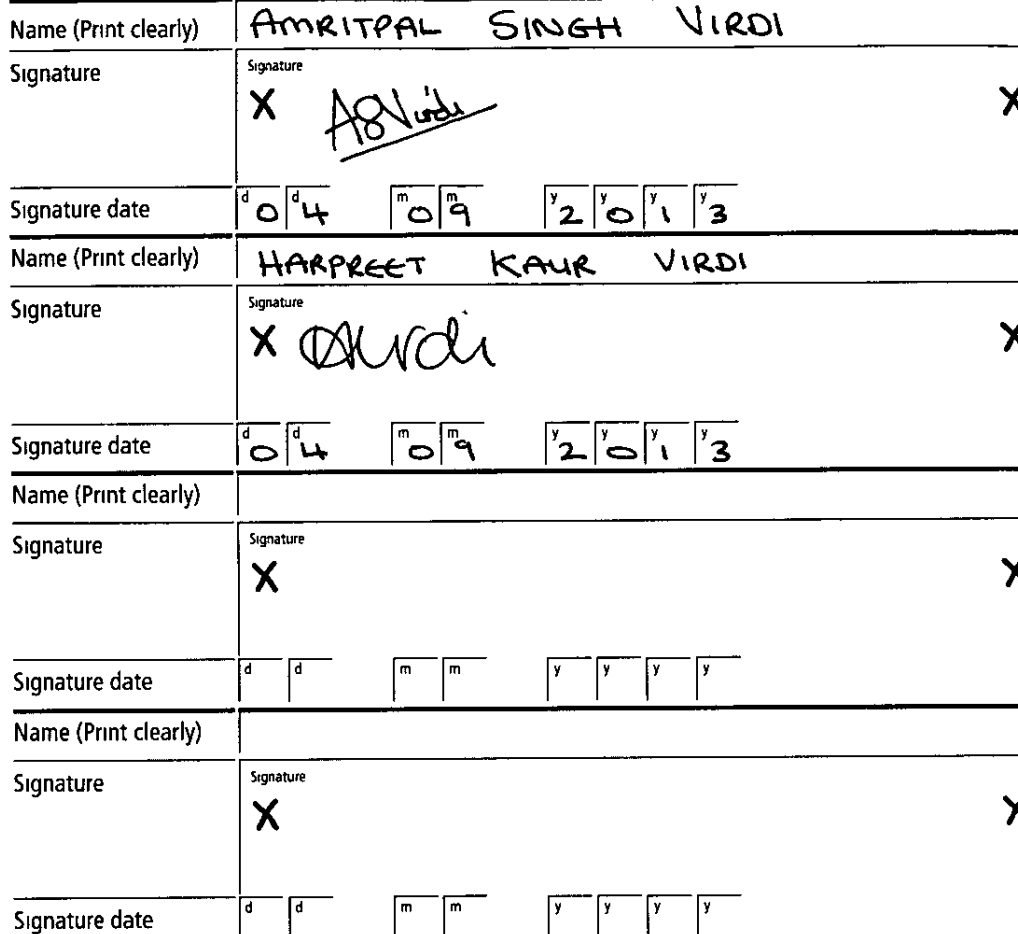 Name (Print clearly) AMRITPAL SINGH VIRDI
Signature Signature
X ASVirdi X
Signature date d0 d4 m0 m9 y2 y0 y1 y3
Name (Print clearly) HARPREET KAUR VIRDI
Signature Signature
X Virdi X
Signature date d0 d4 m0 m9 y2 y0 y1 y3
Name (Print clearly)
Signature Signature
X X
Signature date d d m m y y y y
Name (Print clearly)
Signature Signature
X X
Signature date d d m m y y y y